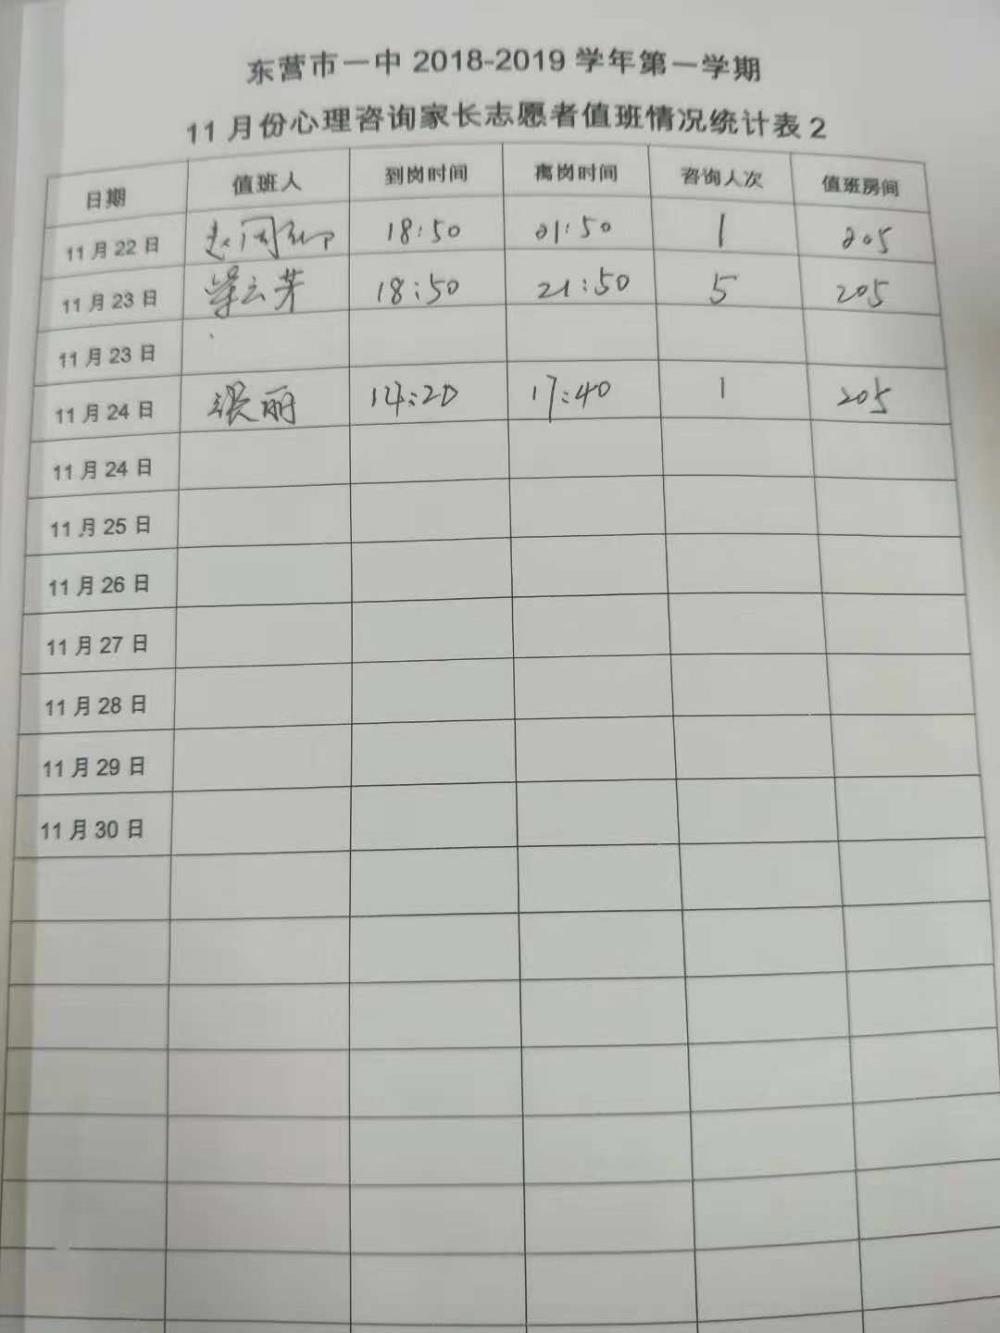 东营市一中 2018-2019 学年第一学期
11 月份心理咨询家长志愿者值班情况统计表 2
日期 值班人 到岗时间 离岗时间 咨询人次 值班房间
11 月 22 日 18:50 21:50 1 205
11 月 23 日 云芳 18:50 21:50 5 205
11 月 23 日
11 月 24 日 张丽 14:20 17:40 1 205
11 月 24 日
11 月 25 日
11 月 26 日
11 月 27 日
11 月 28 日
11 月 29 日
11 月 30 日